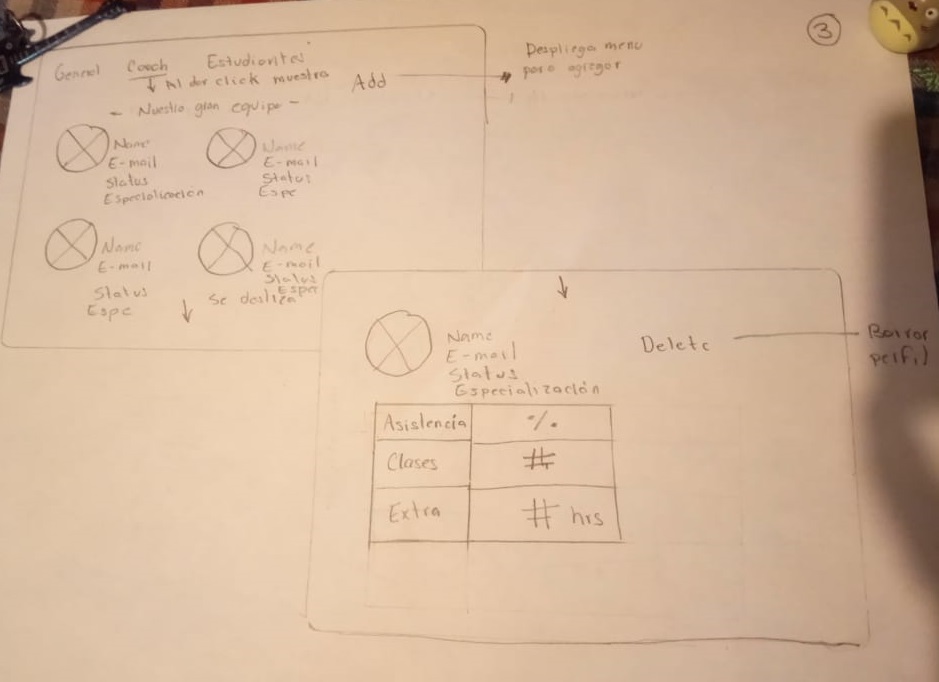 3
General Coach Estudiantes
↓ Al dar click muestra
Add
Despliega menu
para agregar
- Nuestro gran equipo -
Name
E-mail
Status
Especialización
Name
E-mail
Status
Espe
Name
E-mail
Status
Espe
Name
E-mail
Status
Espe
↓ Se desliza
↓
Name
E-mail
Status
Especialización
Delete
Borrar
perfil
Asistencia %
Clases #
Extra # hrs